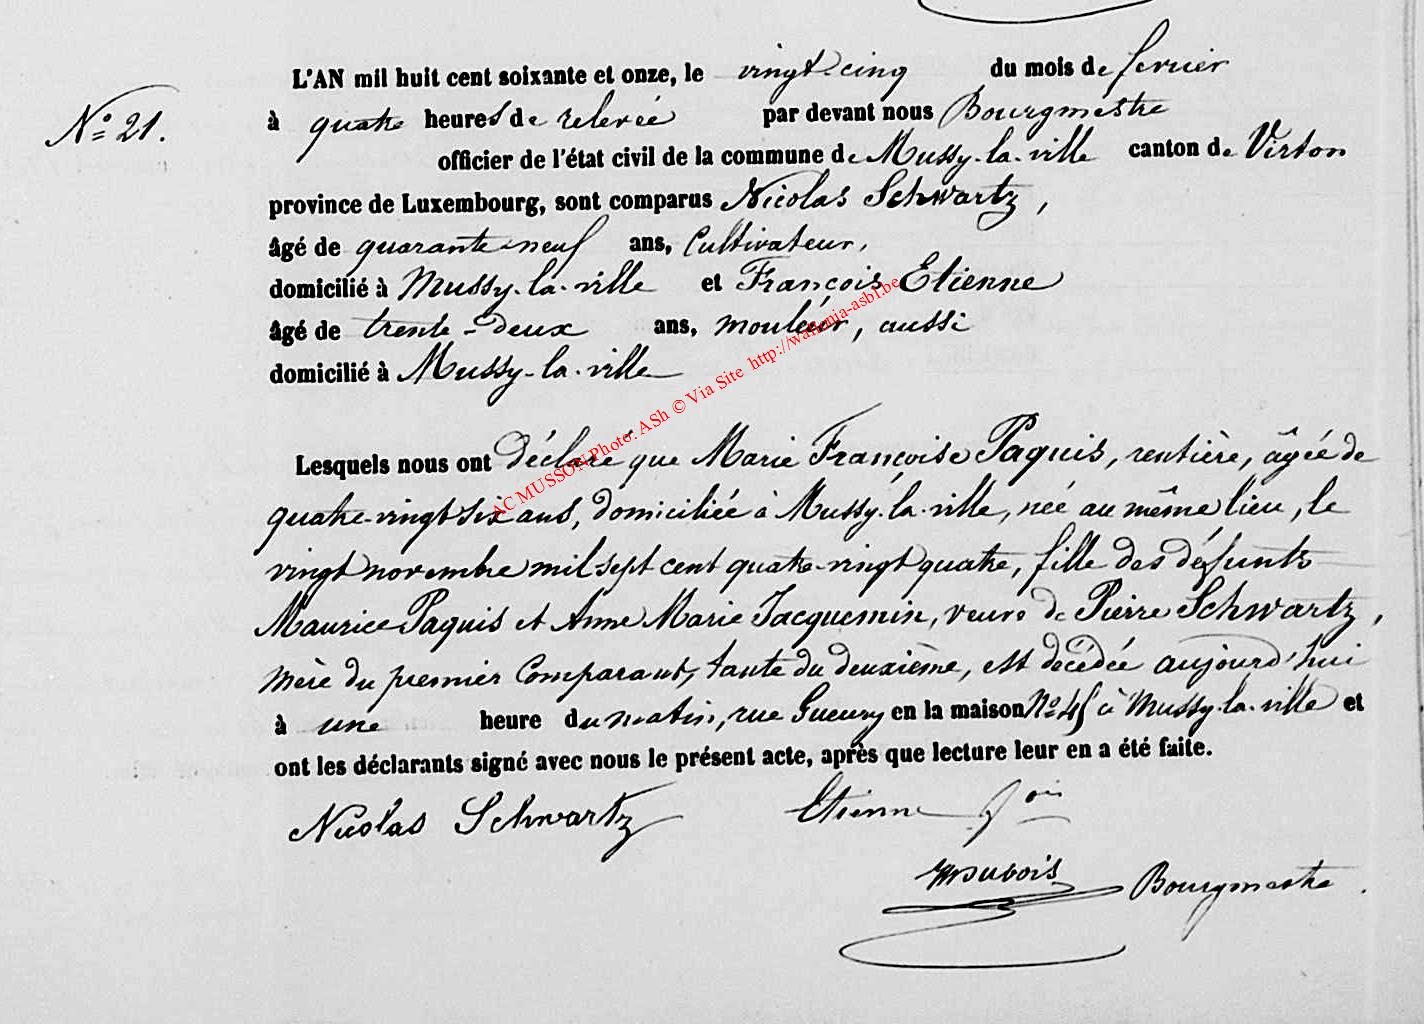 L'AN mil huit cent soixante et onze, le vingt-cinq du mois de fevrier
N° 21. à quatre heures de relevée par devant nous Bourgmestre
officier de l'état civil de la commune de Mussy-la-ville canton de Virton
province de Luxembourg, sont comparus Nicolas Schwartz,
âgé de quarante-neuf ans, cultivateur,
domicilié à Mussy-la-ville et François Etienne
âgé de trente-deux ans, mouleur, aussi
domicilié à Mussy-la-ville
AC MUSSON Photo. ASh © Via Site http://wallonia-asbl.be
Lesquels nous ont déclaré que Marie Françoise Paquis, rentière, âgée de
quatre-vingt six ans, domiciliée à Mussy-la-ville, née au même lieu, le
vingt novembre mil sept cent quatre-vingt quatre, fille des défunts
Maurice Paquis et Anne Marie Jacquemin, veuve de Pierre Schwartz,
mère du premier Comparant, tante du deuxième, est décédée aujourd'hui
à une heure du matin, rue Gueury en la maison N° 45 à Mussy-la-ville et
ont les déclarants signé avec nous le présent acte, après que lecture leur en a été faite.
Nicolas Schwartz Etienne fois
Dubois Bourgmestre.